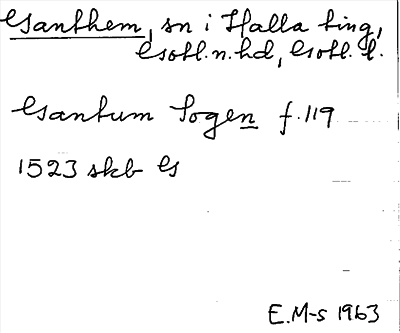 Ganthem, sn i Halla ting,
Gotl.n.hd, Gotl. l.
Gantum Sogen f. 119
1523 skb G
E.M-s 1963